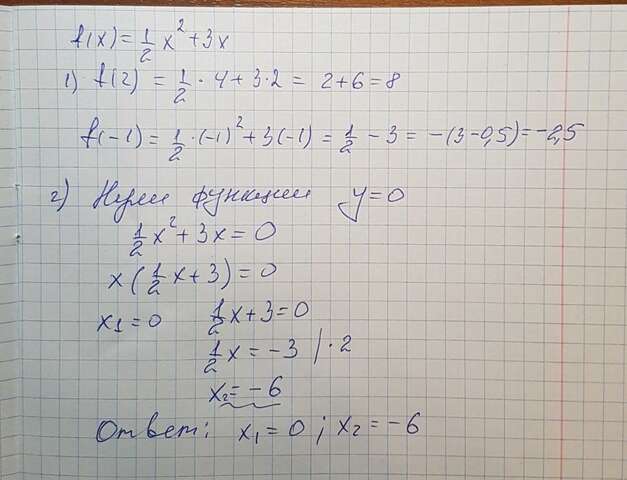 f(x) = 1/2 x² + 3x
1) f(2) = 1/2 · 4 + 3·2 = 2+6 = 8
f(-1) = 1/2 · (-1)² + 3(-1) = 1/2 - 3 = -(3-0,5) = -2,5
2) Нули функции y=0
1/2 x² + 3x = 0
x(1/2 x + 3) = 0
x₁ = 0 1/2 x + 3 = 0
1/2 x = -3 /·2
x₂ = -6
Ответ: x₁ = 0; x₂ = -6